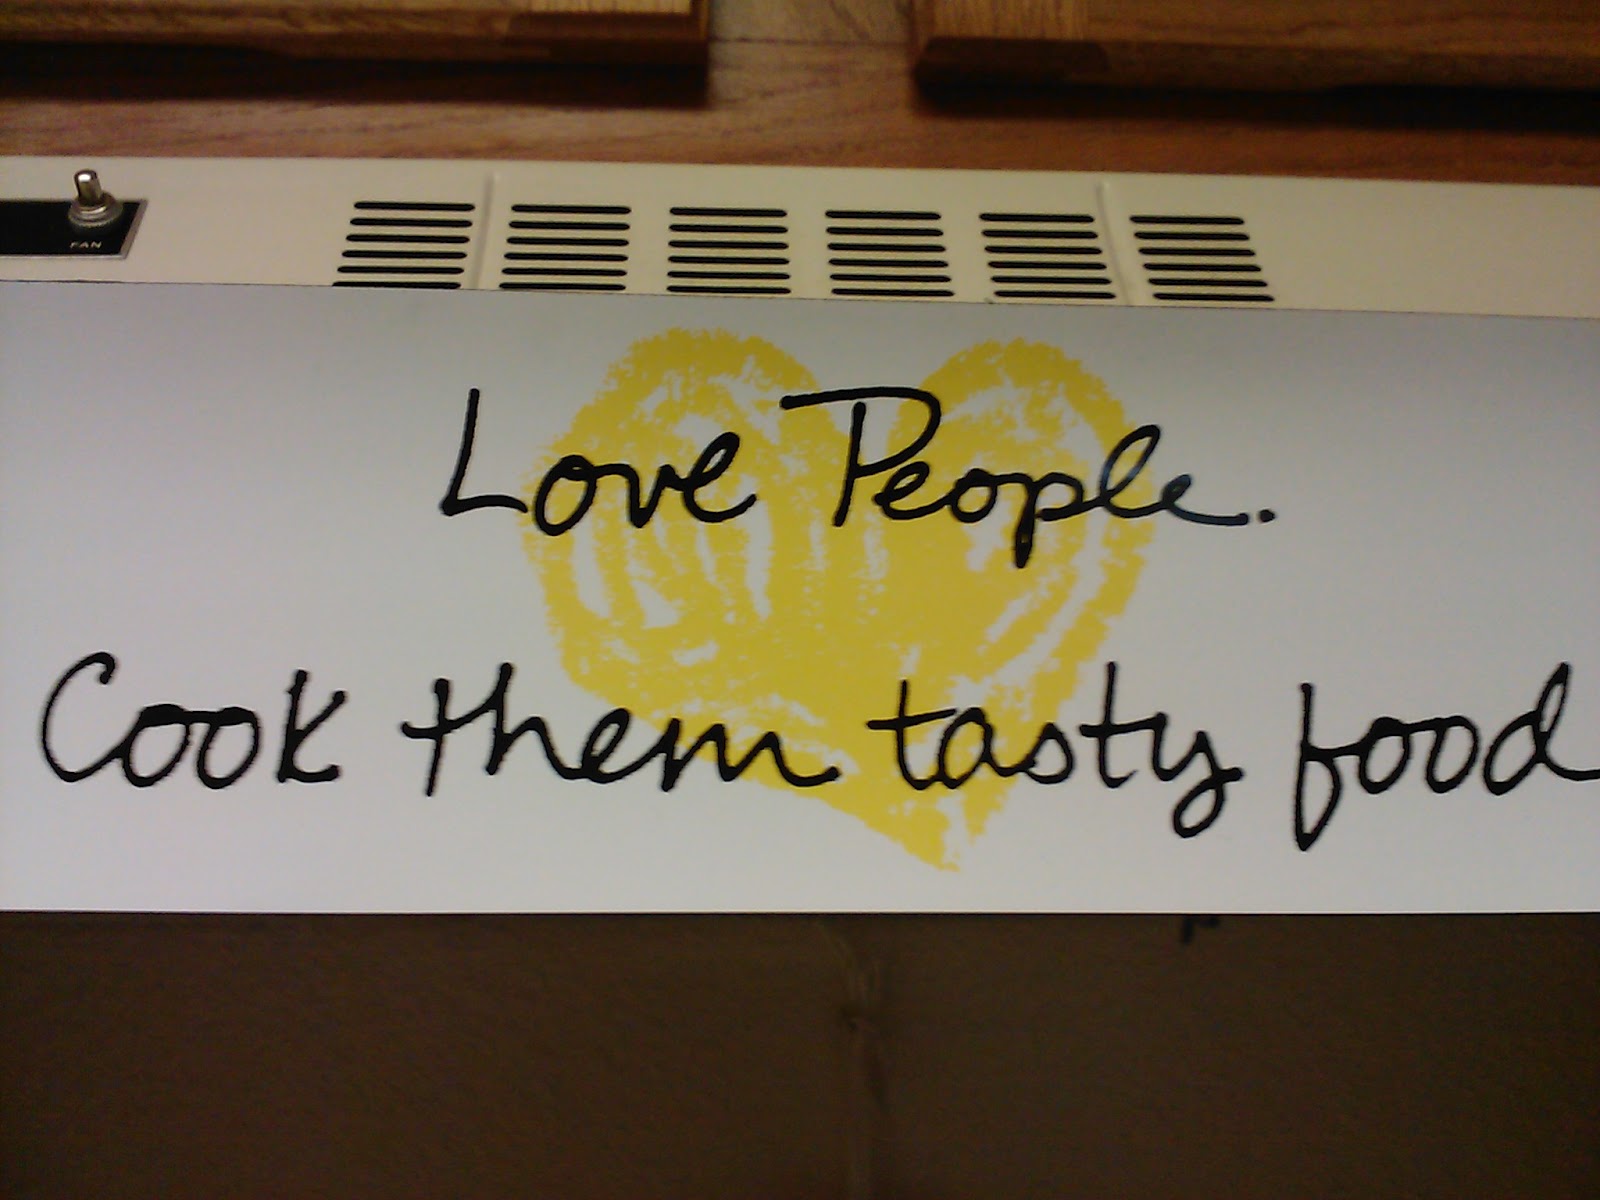 FAN
Love People.
Cook them tasty food